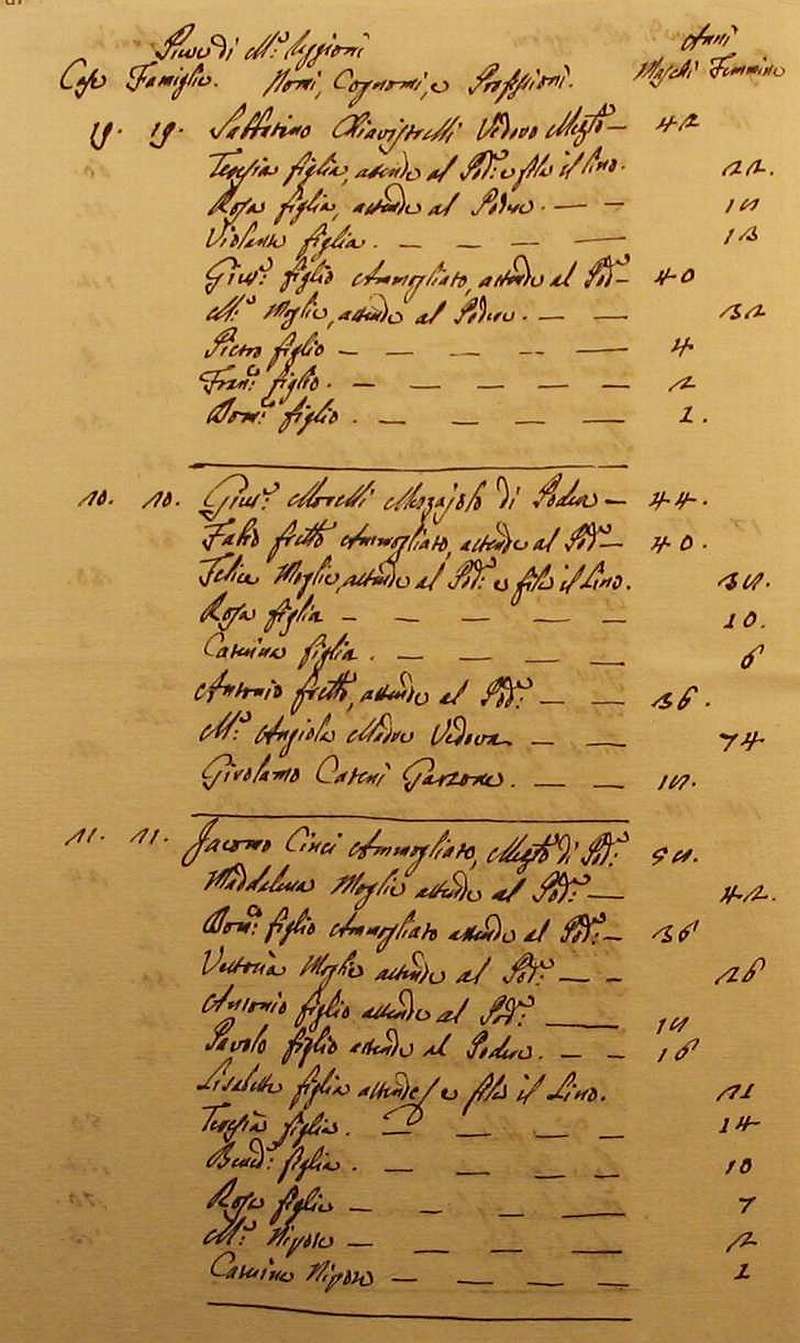 Pieve di M.ª
Anni
Case Famiglie. Nomi, Cognomi, e Professioni. Maschi Femmine
19. 19. Sabbatino Chiavistrelli Vedovo — 42
Teresia figlia, attende al Pod.e e fila il lino. 22.
Rosa figlia, attende al Podere. — —
Violante figlia. — — — — 13
Gius.e figlio Ammogliato, attende al Pod.e — 40
M.ª Moglie, attende al Podere. — — 32
Pietro figlio — — — — — 4
Fran.co figlio. — — — — — 2
Dom.co figlio. — — — — 1.
10. 10. Gius.e Morelli Mezzajolo di Podere — 44.
Fabio frello Ammogliato, attende al Pod.e — 40.
Felice Moglie, attende al Pod.e e fila il Lino.
Rosa figlia — — — — — 10.
Caterina figlia. — — — — 6
Antonio frello, attende al Pod.e — — 36.
M.ª Angiola Madre Vedova — — 74
Girolamo Cateni Garzone. — — —
11. 11. Jacomo Cinci Ammogliato, di Pod.e
Maddalena Moglie attende al Pod.e — 42.
Dom.co figlio Ammogliato attende al Pod.e — 36
Vettoria Moglie attende al Pod.e — — 26
Antonio figlio attende al Pod.e —
Pavolo figlio attende al Podere. — — 16
Lisabetta figlia attende e fila il Lino.
Teresia figlia. — — — — 14
Bened.ª figlia. — — — — 10
Rosa figlia — — — — 7
M.ª Nipote — — — — 2
Caterina Nipote — — — — 1